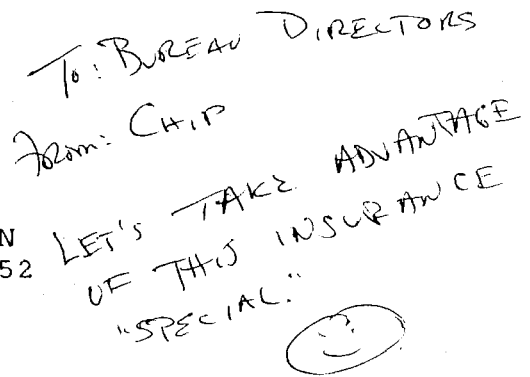 To: BUREAU DIRECTORS
From: CHIP
N LET'S TAKE ADVANTAGE
52 OF THIS INSURANCE
"SPECIAL."